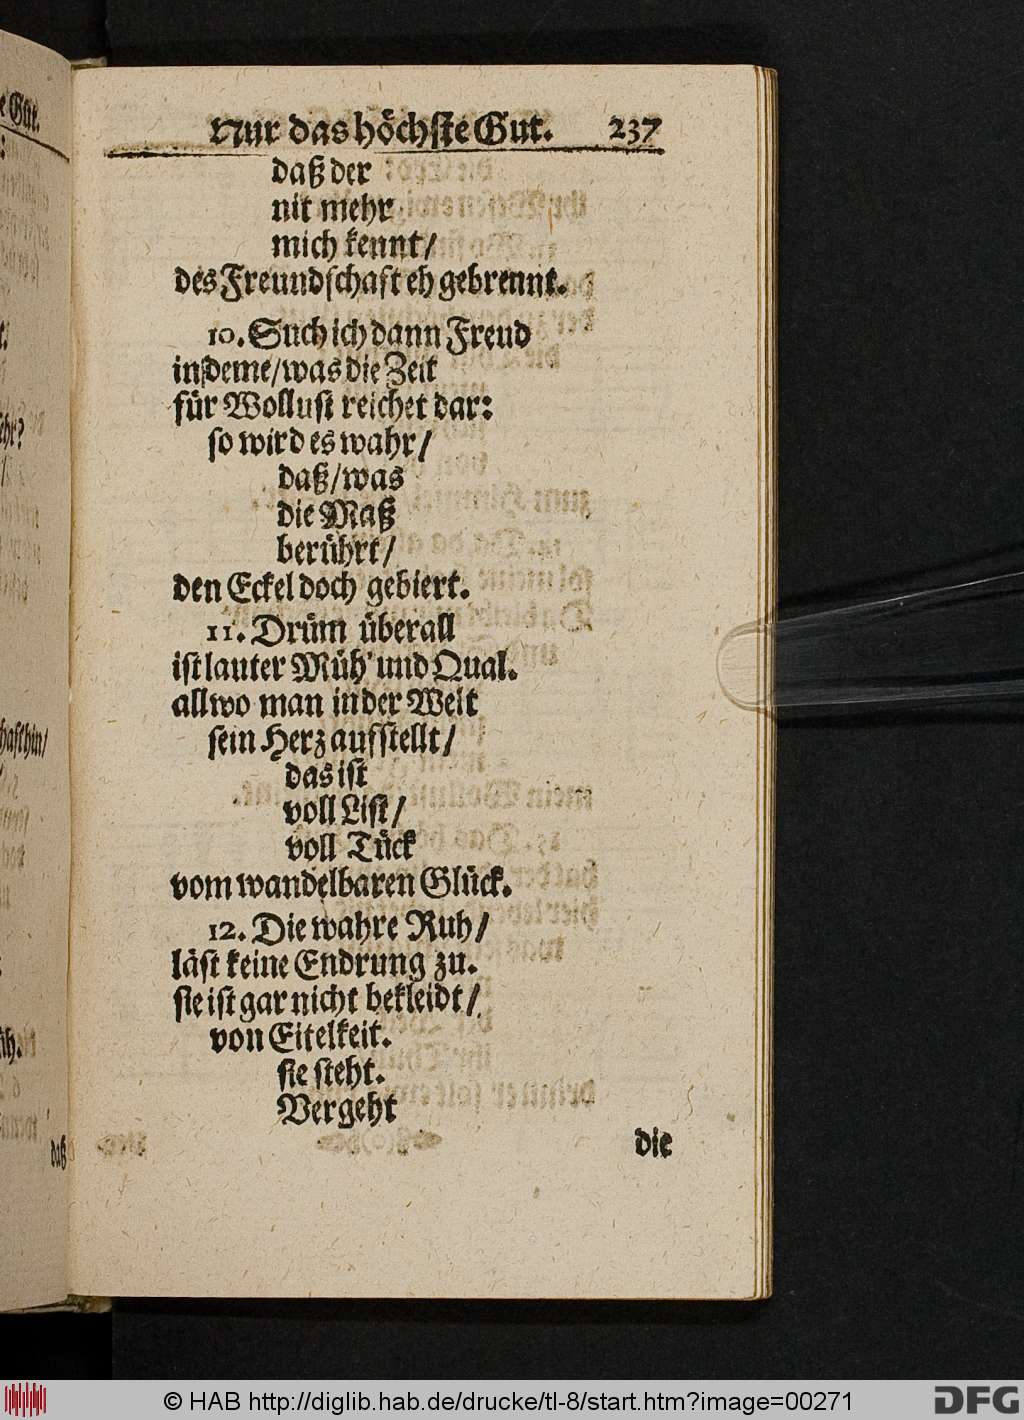 Nur das höchste Gut. 237
daß der
nit mehr
mich kennt/
des Freundschaft eh gebrennt.
10. Such ich dann Freud
in deme/was die Zeit
für Wollust reichet dar:
so wird es wahr/
daß/was
die Maß
berührt/
den Eckel doch gebiert.
11. Drüm überall
ist lauter Müh' und Qual.
allwo man in der Welt
sein Herz aufstellt/
das ist
voll List/
voll Tück
vom wandelbaren Glück.
12. Die wahre Ruh/
läst keine Endrung zu.
sie ist gar nicht bekleidt/
von Eitelkeit.
sie steht.
Vergeht
die
daß
© HAB http://diglib.hab.de/drucke/tl-8/start.htm?image=00271
DFG